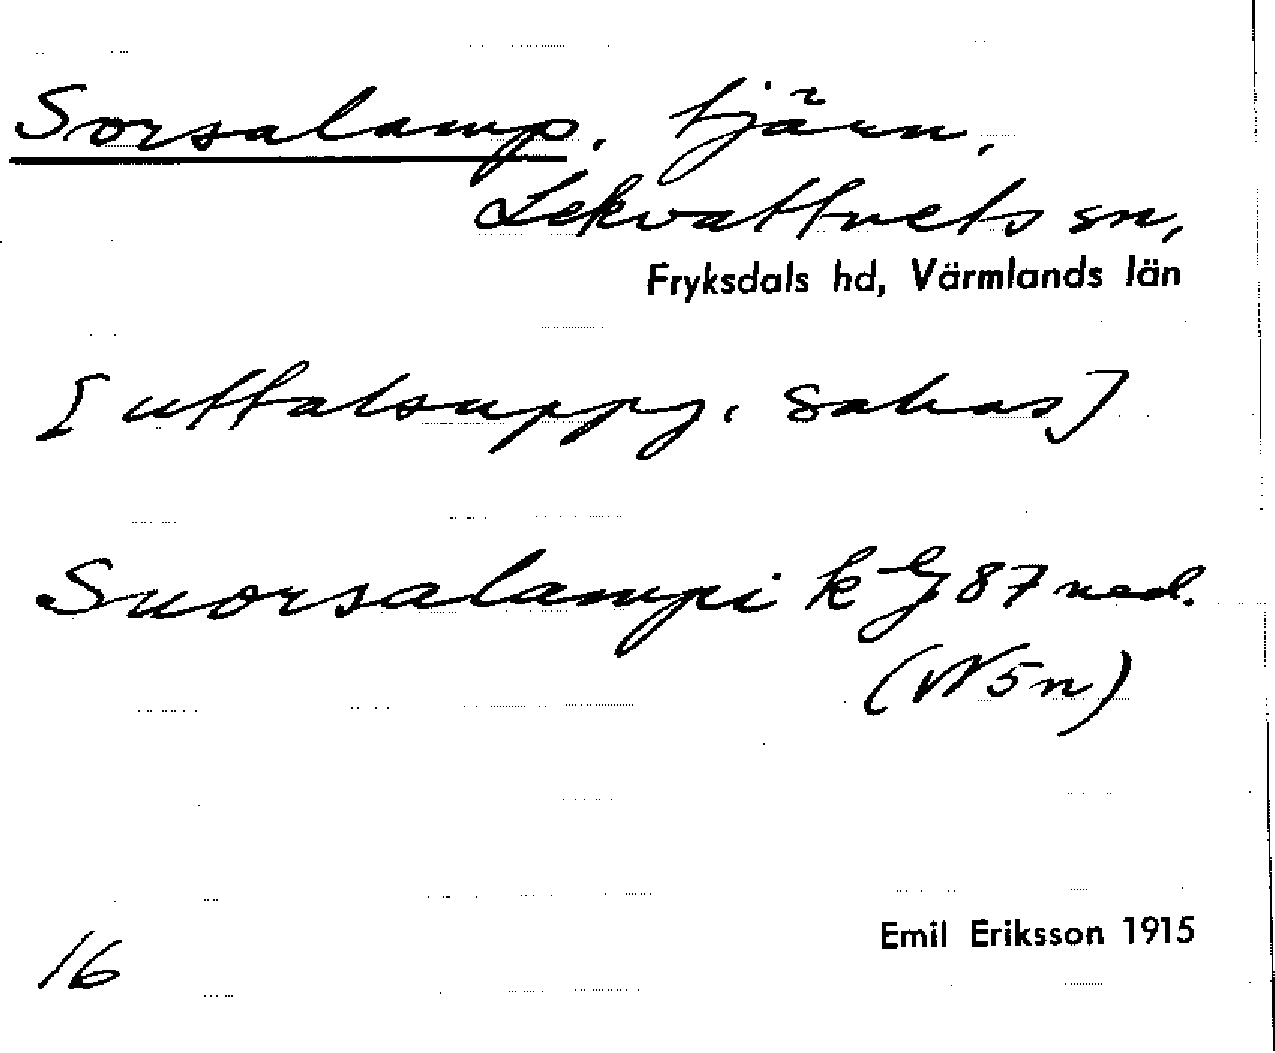 Sorsalamp, tjärn,
Lekvattnets sn,
Fryksdals hd, Värmlands län
[uttalsuppg. saknas]
Suorsalampi k G 87 ned.
(W5n)
Emil Eriksson 1915
16